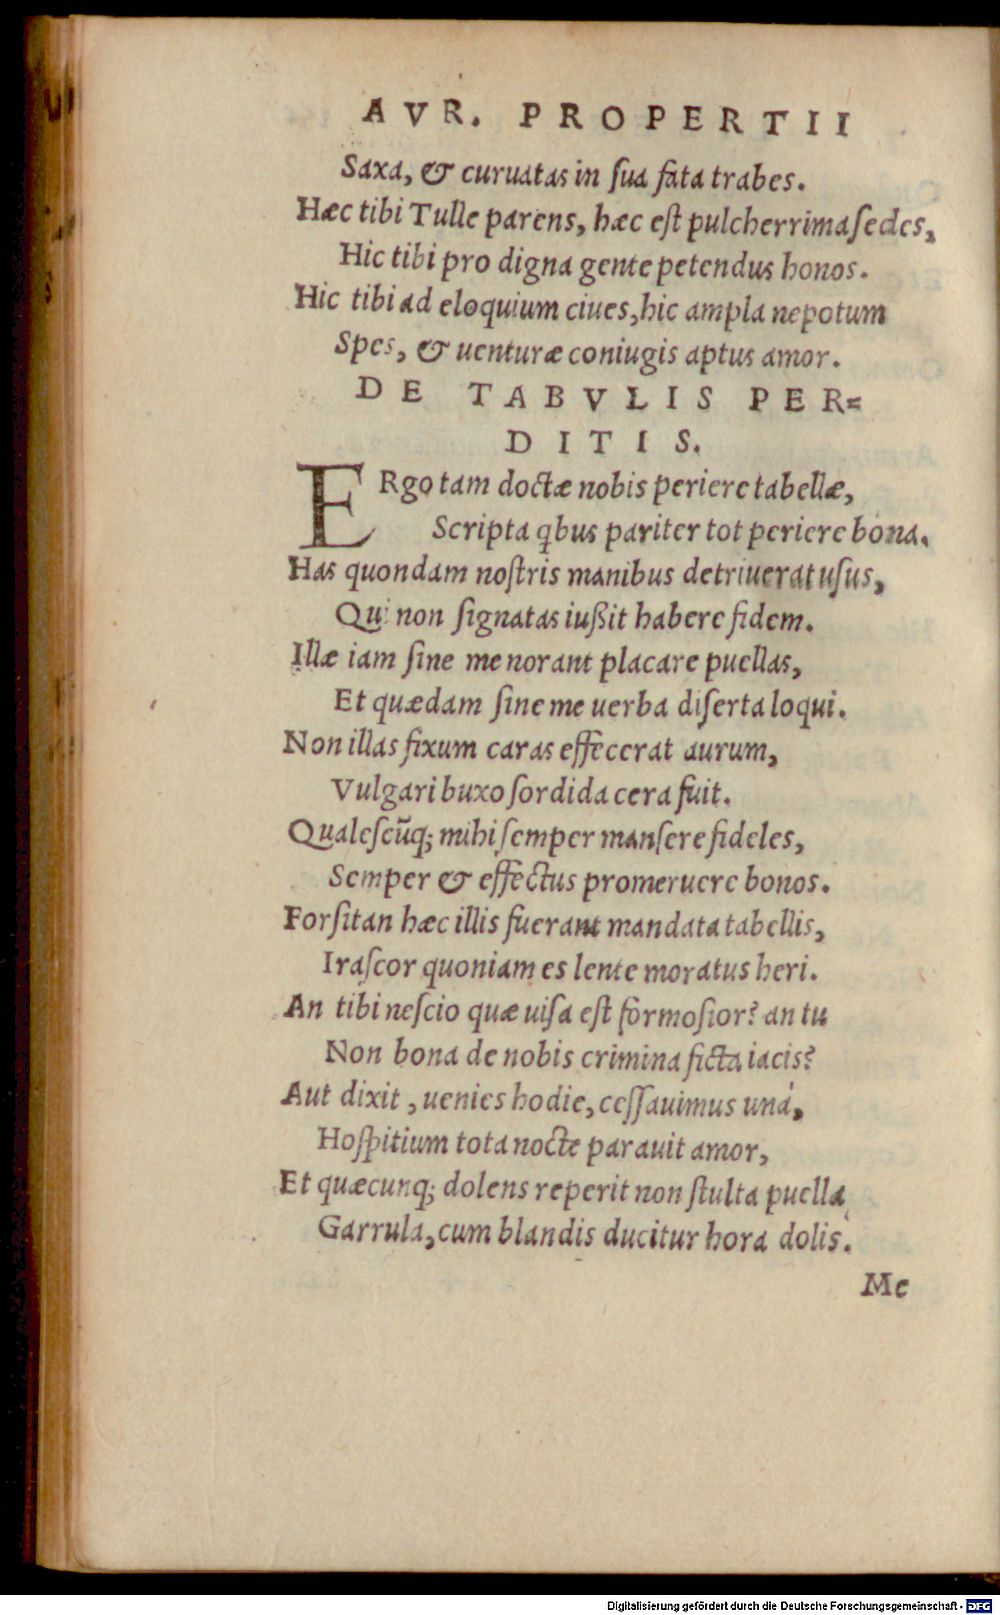 AVR. PROPERTII
Saxa, & curuatas in ſua fata trabes.
Hæc tibi Tulle parens, hæc eſt pulcherrima ſedes,
Hic tibi pro digna gente petendus honos.
Hic tibi ad eloquium ciues, hic ampla nepotum
Spes, & uenturæ coniugis aptus amor.
DE TABVLIS PER=
DITIS.
ERgo tam doctæ nobis periere tabellæ,
Scripta qbus pariter tot periere bona.
Has quondam noſtris manibus detriuerat uſus,
Qui non ſignatas iußit habere fidem.
Illæ iam ſine me norant placare puellas,
Et quædam ſine me uerba diſerta loqui.
Non illas fixum caras effecerat aurum,
Vulgari buxo ſordida cera fuit.
Qualeſcũq; mihi ſemper manſere fideles,
Semper & effectus promeruere bonos.
Forſitan hæc illis fuerant mandata tabellis,
Iraſcor quoniam es lente moratus heri.
An tibi neſcio quæ uiſa eſt formoſior? an tu
Non bona de nobis crimina ficta iacis?
Aut dixit, uenies hodie, ceſſauimus unà,
Hoſpitium tota nocte parauit amor,
Et quæcunq; dolens reperit non ſtulta puella
Garrula, cum blandis ducitur hora dolis.
Me
Digitalisierung gefördert durch die Deutsche Forschungsgemeinschaft - DFG